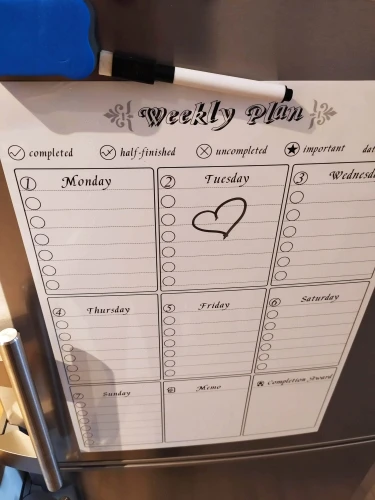 Weekly Plan
completed half-finished uncompleted important dat
1 Monday 2 Tuesday 3 Wednesda
4 Thursday 5 Friday 6 Saturday
7 Sunday Memo Completion Award